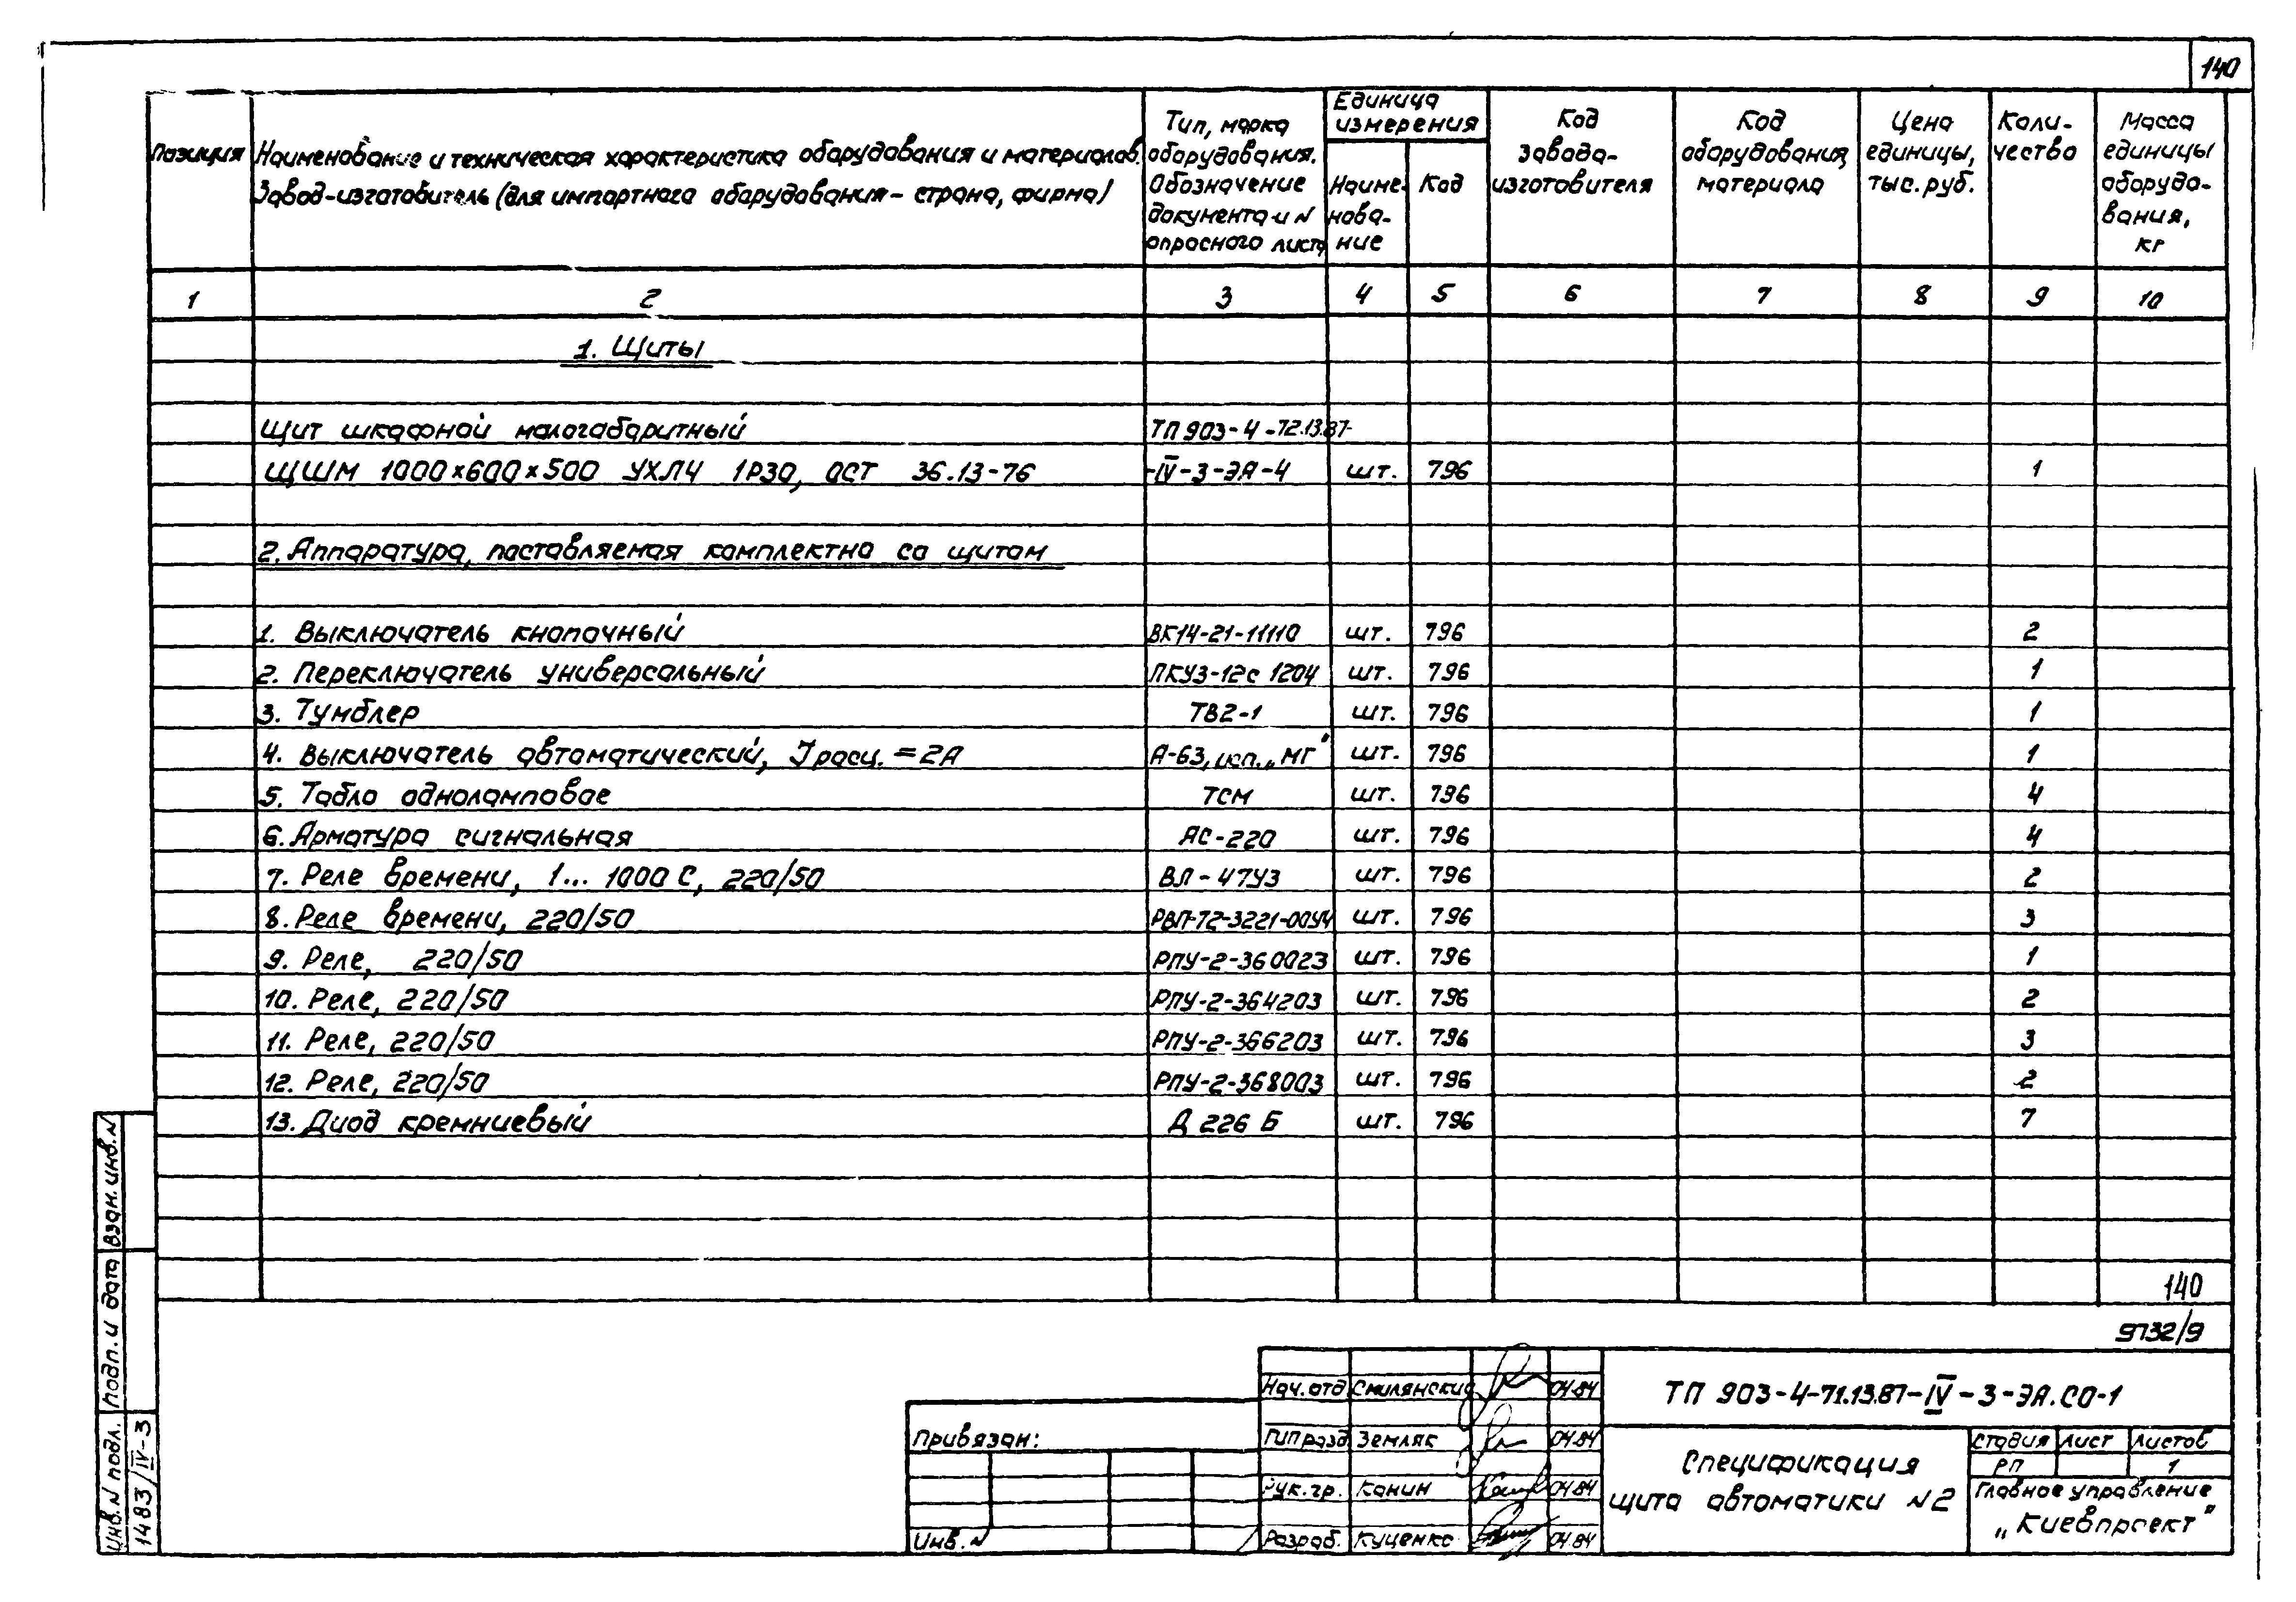 140
Позиция
Наименование и техническая характеристика оборудования и материалов.
Завод-изготовитель (для импортного оборудования - страна, фирма)
Тип, марка
оборудования.
Обозначение
документа и N
опросного листа
Единица
измерения
Наиме-
нова-
ние
Код
Код
завода-
изготовителя
Код
оборудования,
материала
Цена
единицы,
тыс. руб.
Коли-
чество
Масса
единицы
оборудо-
вания,
кг
1 2 3 4 5 6 7 8 9 10
1. Щиты
Щит шкафной малогабаритный ТП 903-4-72.13.87-
ЩШМ 1000×600×500 УХЛ4 1Р30, ОСТ 36.13-76 -IV-3-ЭА-4 шт. 796 1
2. Аппаратура, поставляемая комплектно со щитом
1. Выключатель кнопочный ВК14-21-11110 шт. 796 2
2. Переключатель универсальный ПКУ3-12с 1204 шт. 796 1
3. Тумблер ТВ2-1 шт. 796 1
4. Выключатель автоматический, Iрасц. = 2А А-63, исп. „МГ" шт. 796 1
5. Табло одноламповое ТСМ шт. 796 4
6. Арматура сигнальная АС-220 шт. 796 4
7. Реле времени, 1... 1000 С, 220/50 ВЛ-47У3 шт. 796 2
8. Реле времени, 220/50 РВП-72-3221-00У4 шт. 796 3
9. Реле, 220/50 РПУ-2-360023 шт. 796 1
10. Реле, 220/50 РПУ-2-364203 шт. 796 2
11. Реле, 220/50 РПУ-2-366203 шт. 796 3
12. Реле, 220/50 РПУ-2-368003 шт. 796 2
13. Диод кремниевый Д 226 Б шт. 796 7
140
9732/9
Взам. инв. N
Подп. и дата
Инв. N подл.
1483/IV-3
Привязан:
Инв. N
Нач. отд Смилянский 04.84
ГИП разд Земляк 04.84
Рук. гр. Канин 04.84
Разраб. Куценко 04.84
ТП 903-4-71.13.87-IV-3-ЭА.СО-1
Спецификация
щита автоматики N2
Стадия Лист Листов
РП 1
Главное управление
„Киевпроект"